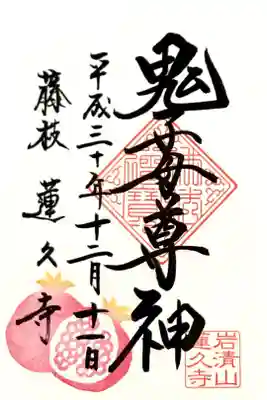 鬼子母尊神
平成三十年十二月十一日
藤枝 蓮久寺
蓮久寺